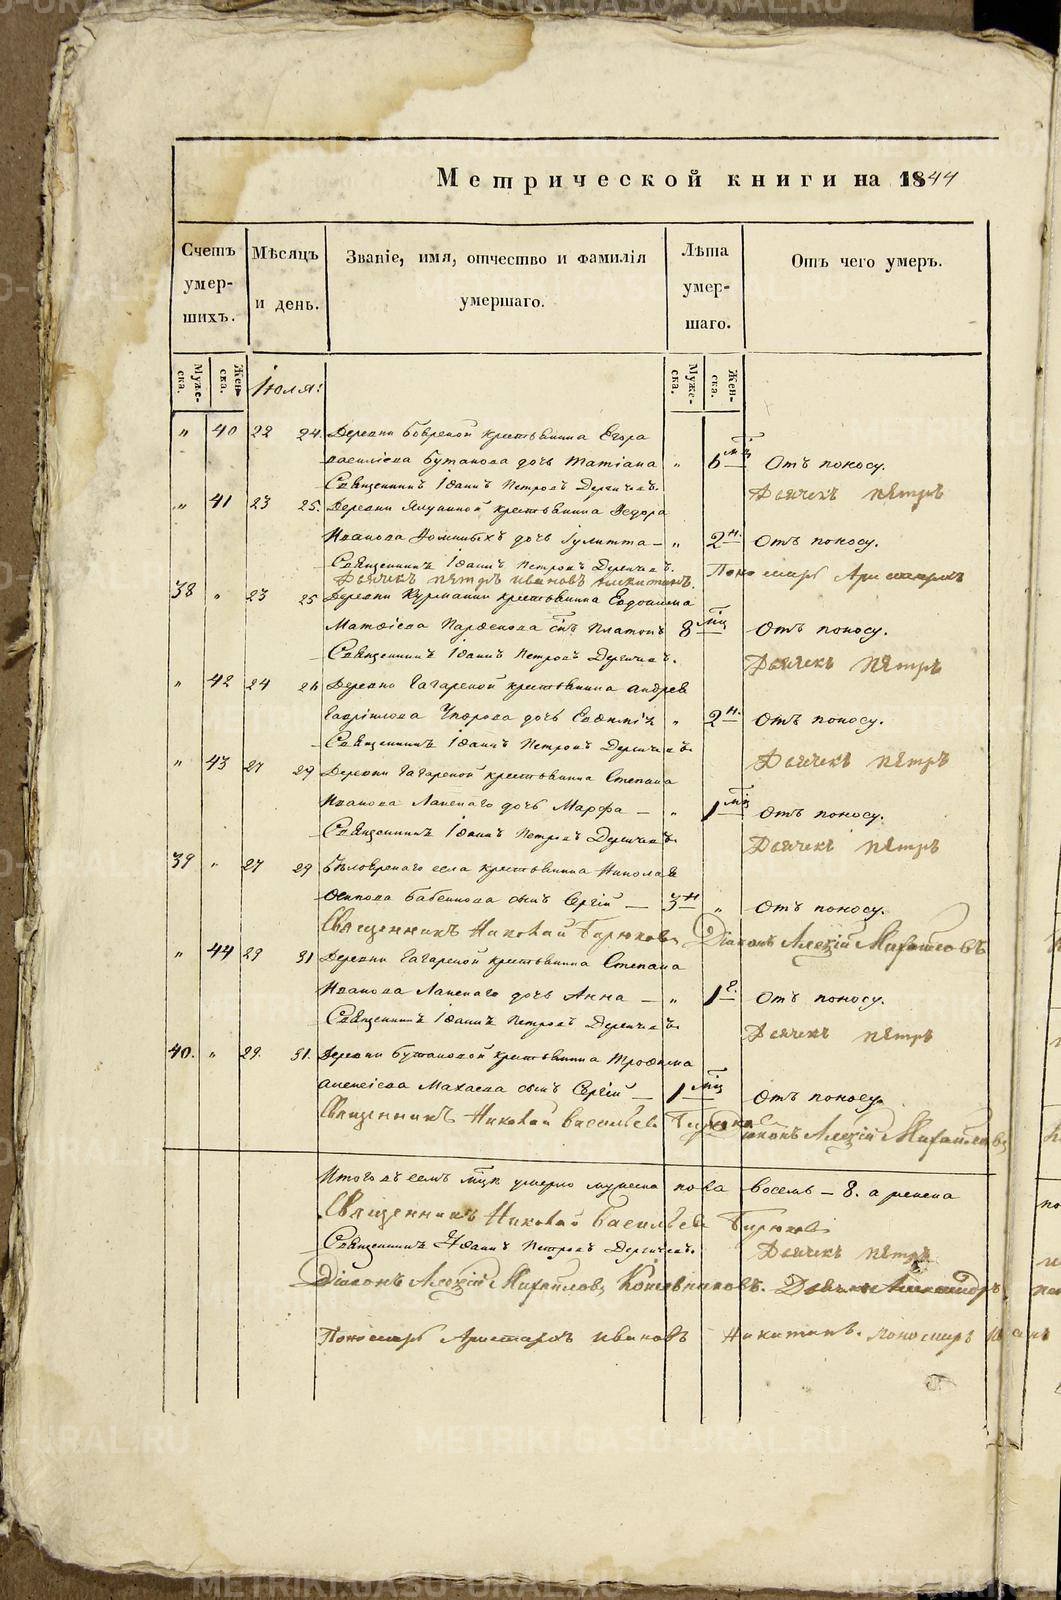 Метрической книги на 1844
Счетъ умер- шихъ.
Мѣсяцъ и день.
Званіе, имя, отчество и фамилія умершаго.
Лѣта умер- шаго.
Отъ чего умеръ.
Муже- ска.
Жен- ска.
Іюля:
Муже- ска.
Жен- ска.
" 40 22 24. Деревни крестьянина Егора
василіева Бутакова дочь Татіана " 6 мц Отъ поносу.
Священникъ Іоаннъ Петровъ Дьячекъ пѣтръ
" 41 23 25. Деревни крестьянина Ѳедора
Иванова дочь Іулитта — " 2 н. Отъ поносу.
Священникъ Іоаннъ Петровъ Пономарь Аристархъ
Дьячекъ пѣтръ ивановъ никитинъ.
38 " 23 25 Деревни крестьянина Евдокима
Матѳіева снъ Платонъ 8 мц Отъ поносу.
Священникъ Іоаннъ Петровъ Дьячекъ пѣтръ
" 42 24 26 Деревни Гагарской крестьянина андрея
Гавріилова дочь Евѳимія " 2 н. Отъ поносу.
Священникъ Іоаннъ Петровъ Дьячекъ пѣтръ
" 43 27 29 Деревни Гагарской крестьянина Степана
Иванова дочь Марфа — " 1 мц Отъ поносу.
Священникъ Іоаннъ Петровъ Дьячекъ пѣтръ
39 " 27 29 Бѣлоярскаго села крестьянина Николая
Осипова сынъ Сергій — 3 н " Отъ поносу.
Священникъ Николай Бирюковъ Діаконъ Алексій Михайловъ
" 44 29 31 Деревни Гагарской крестьянина Степана
Иванова дочь Анна — " 1 г. Отъ поносу.
Священникъ Іоаннъ Петровъ Дьячекъ пѣтръ
40. " 29. 31. Деревни Бутаковой крестьянина Трофима
алексіева сынъ Сергій — 1 мц Отъ поносу.
Священникъ Николай васильевъ Бирюковъ Діаконъ Алексій Михайловъ
Итого въ семъ мцѣ умерло мужеска пола восемь — 8. а женска
Священникъ Николай Васильевъ Бирюковъ
Священникъ Іоаннъ Петровъ Дьячекъ пѣтръ
Діаконъ Алексій Михайловъ Котельниковъ. Дьячекъ Александръ
Пономарь Аристархъ ивановъ Никитинъ. пономарь
METRIKI.GASO-URAL.RU